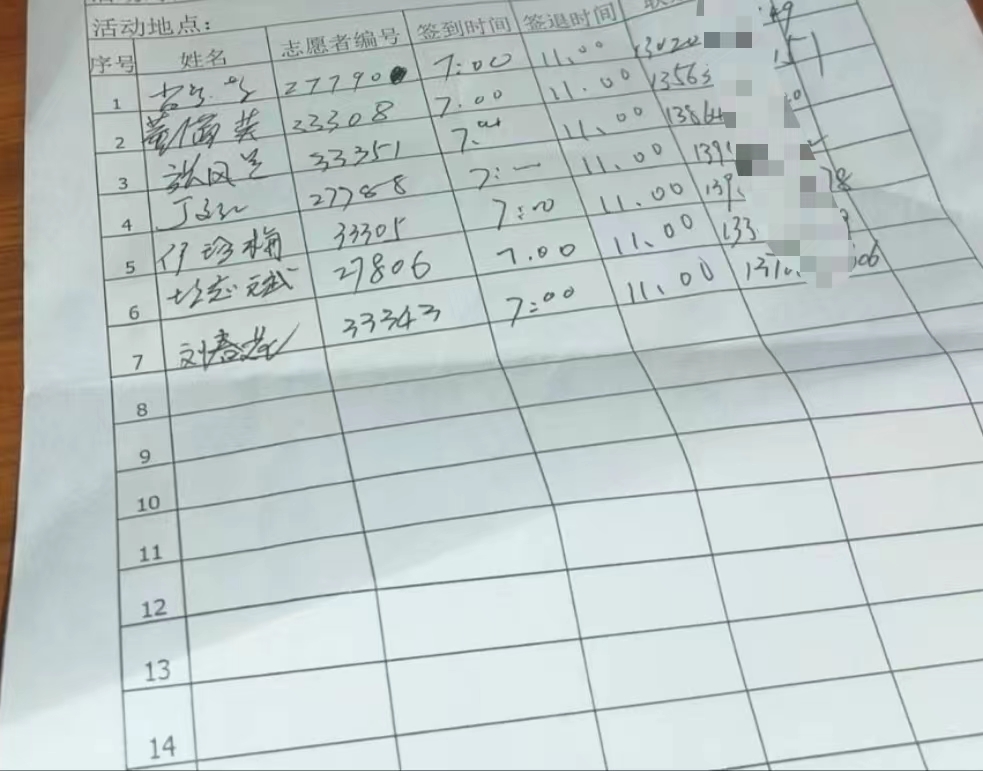 活动地点：
序号 姓名 志愿者编号 签到时间 签退时间
1 27790 7:00 11.00 130202
2 董值英 33308 7.00 11.00 13563 151
3 张风兰 33351 7.00 11.00 13864
4 27788 7:00 11.00 139
5 付珍梅 33305 7:00 11.00 139 78
6 27806 7.00 11.00 133
7 刘春英 33343 7:00 11.00 1370 106
8
9
10
11
12
13
14